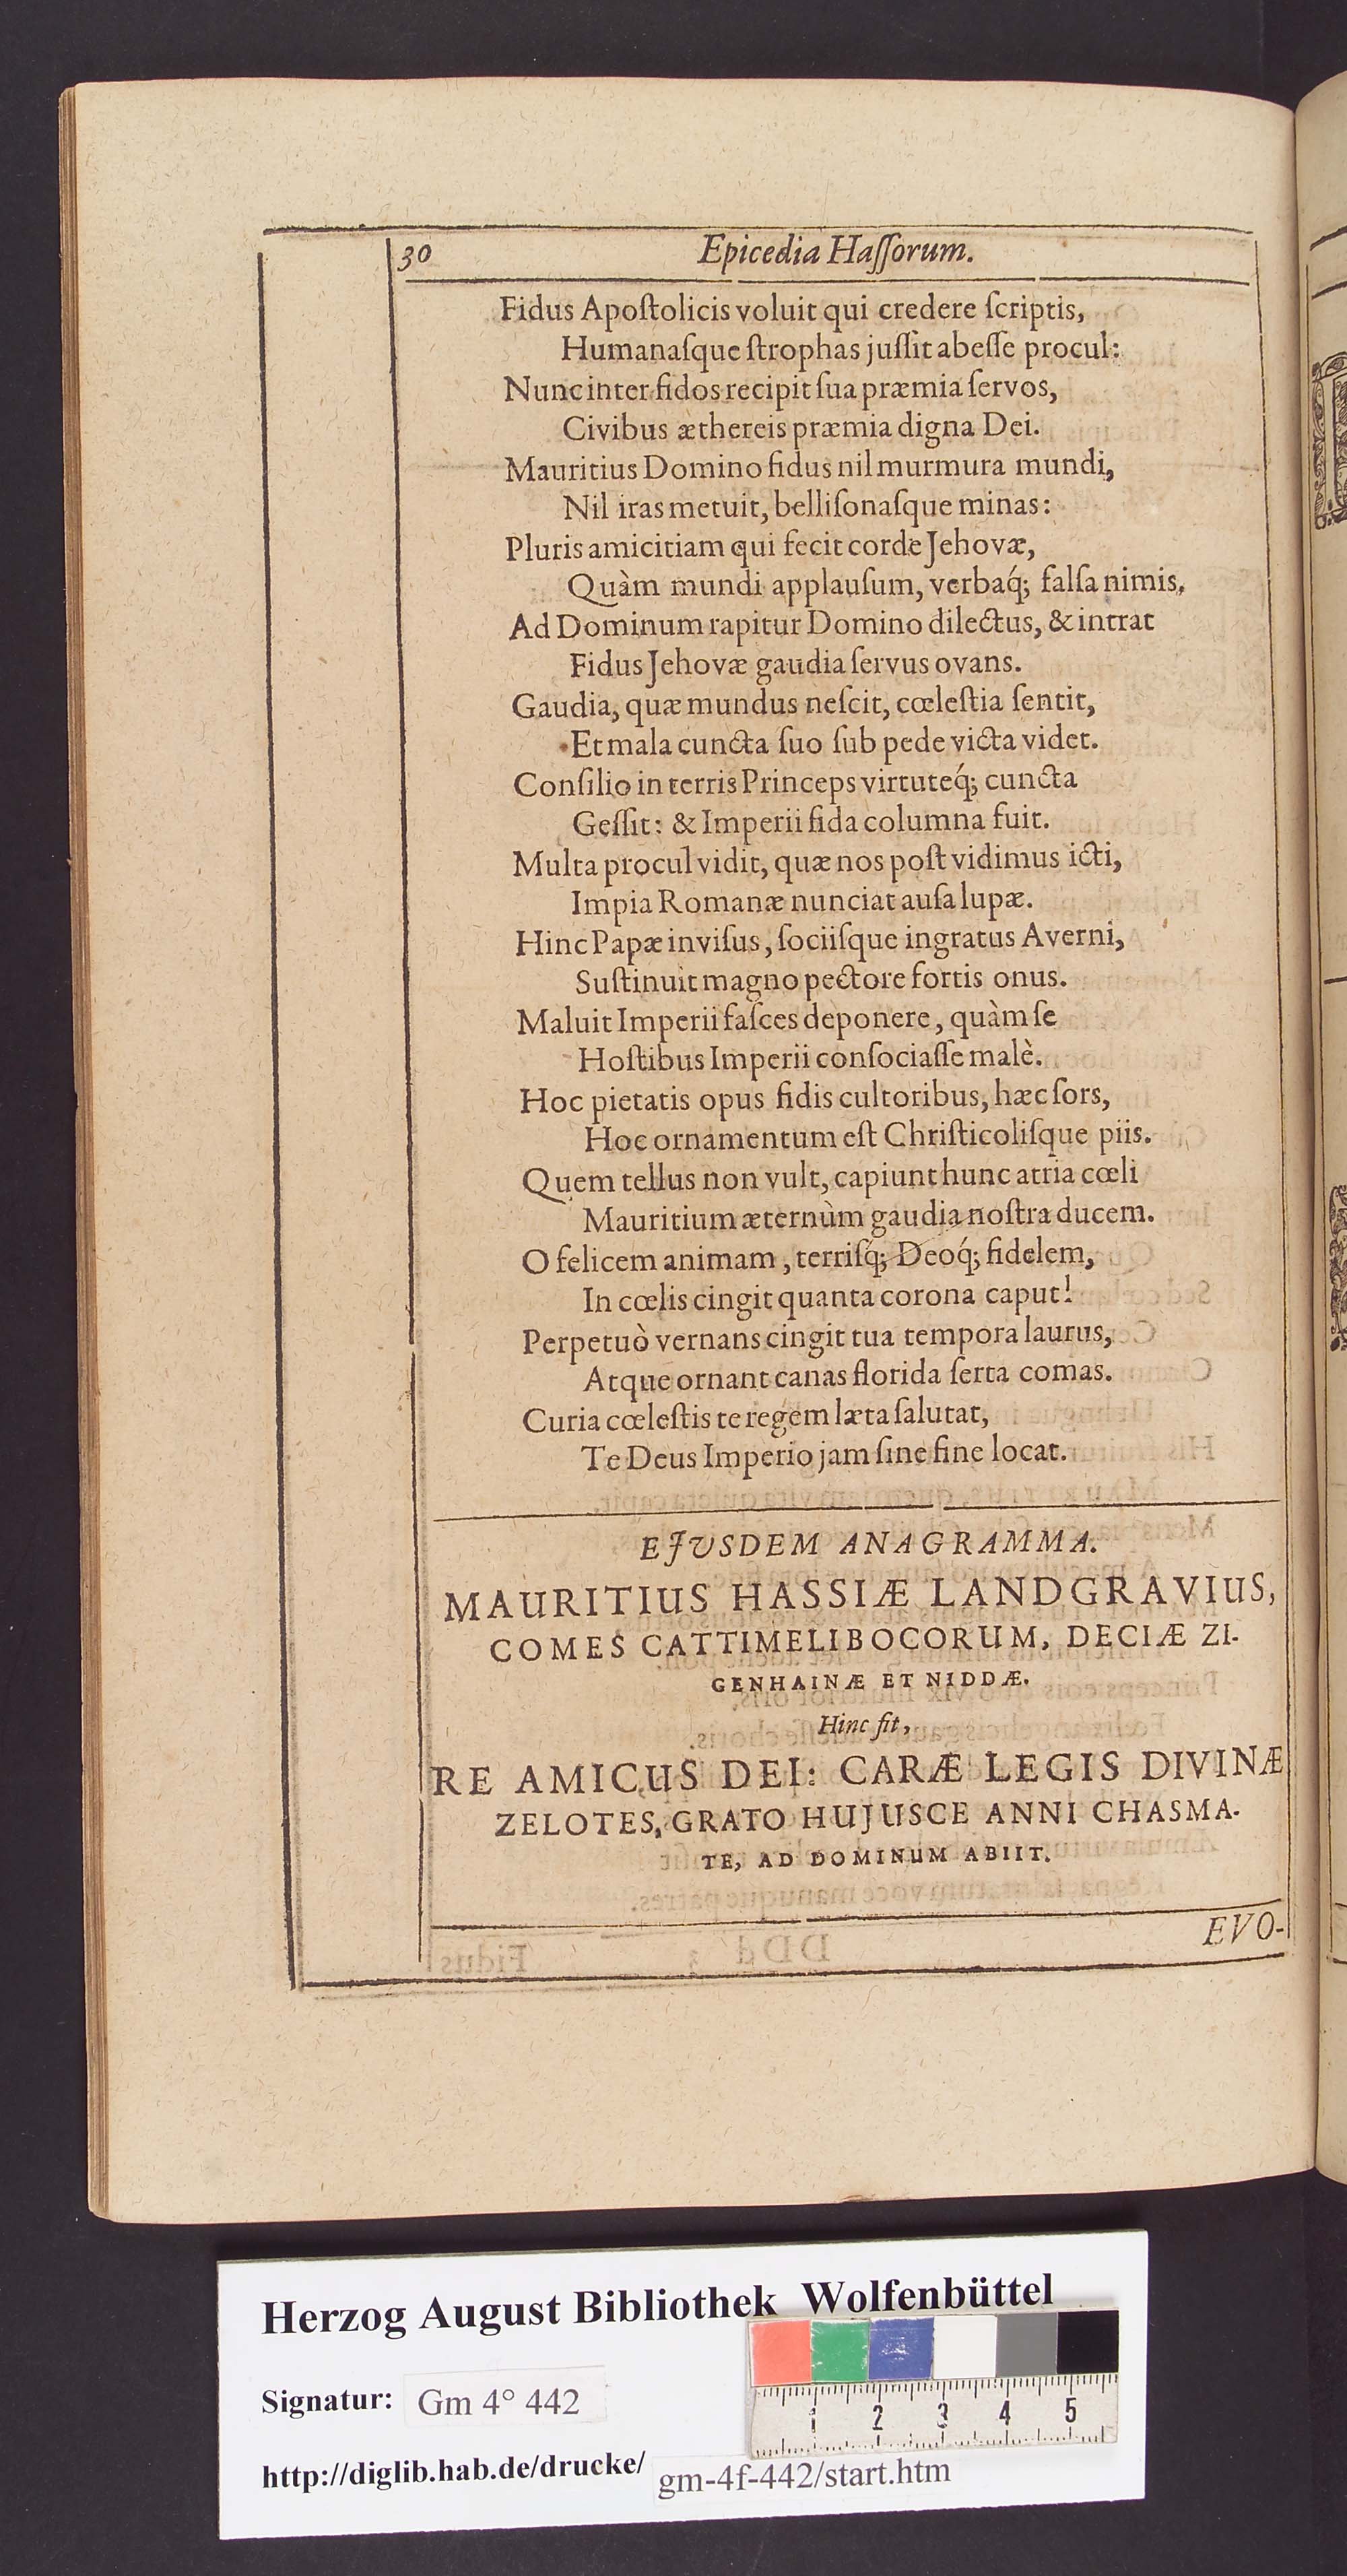 30 Epicedia Haſſorum.
Fidus Apoſtolicis voluit qui credere ſcriptis,
Humanaſque ſtrophas juſſit abeſſe procul:
Nunc inter fidos recipit ſua præmia ſervos,
Civibus æthereis præmia digna Dei.
Mauritius Domino fidus nil murmura mundi,
Nil iras metuit, belliſonaſque minas:
Pluris amicitiam qui fecit corde Jehovæ,
Quàm mundi applauſum, verbaq́; falſa nimis,
Ad Dominum rapitur Domino dilectus, & intrat
Fidus Jehovæ gaudia ſervus ovans.
Gaudia, quæ mundus neſcit, cœleſtia ſentit,
Et mala cuncta ſuo ſub pede victa videt.
Conſilio in terris Princeps virtuteq́; cuncta
Geſſit: & Imperii fida columna fuit.
Multa procul vidit, quæ nos poſt vidimus icti,
Impia Romanæ nunciat auſa lupæ.
Hinc Papæ inviſus, ſociiſque ingratus Averni,
Suſtinuit magno pectore fortis onus.
Maluit Imperii faſces deponere, quàm ſe
Hoſtibus Imperii conſociaſſe malè.
Hoc pietatis opus fidis cultoribus, hæc ſors,
Hoc ornamentum eſt Chriſticoliſque piis.
Quem tellus non vult, capiunt hunc atria cœli
Mauritium æternùm gaudia noſtra ducem.
O felicem animam, terriſq́; Deoq́; fidelem,
In cœlis cingit quanta corona caput!
Perpetuò vernans cingit tua tempora laurus,
Atque ornant canas florida ſerta comas.
Curia cœleſtis te regem læta ſalutat,
Te Deus Imperio jam ſine fine locat.
EJUSDEM ANAGRAMMA.
MAURITIUS HASSIÆ LANDGRAVIUS,
COMES CATTIMELIBOCORUM, DECIÆ ZI-
GENHAINÆ ET NIDDÆ.
Hinc fit,
RE AMICUS DEI: CARÆ LEGIS DIVINÆ
ZELOTES, GRATO HUJUSCE ANNI CHASMA-
TE, AD DOMINUM ABIIT.
EVO-
Herzog August Bibliothek Wolfenbüttel
Signatur: Gm 4° 442
http://diglib.hab.de/drucke/ gm-4f-442/start.htm
1 2 3 4 5